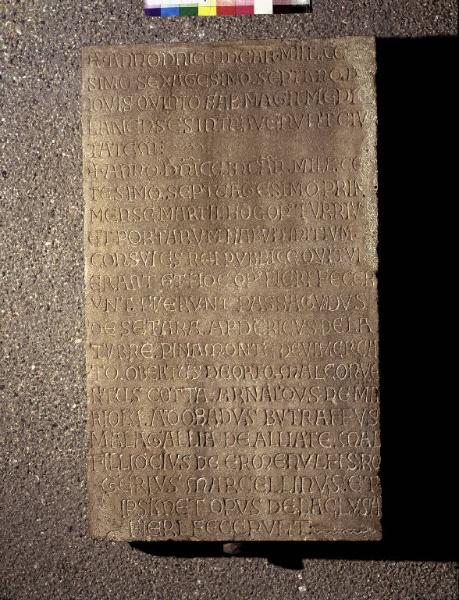 ANNO DNICE INCAR MILL CE
SIMO SEXAGESIMO SEPTIMO D
IOVIS QVINTO KAL MAGII MEDIO
LANENSES INTRAVERVNT CIVI
TATEM
ANNO DNICE INCAR MILL CE
TESIMO SEPTVAGESIMO PRIM
MENSE MARTII HOC OPTVRRIV
ET PORTARVM
CONSVLES REI PVBLICE QVI TVN
ERANT ET HOC OP FIERI FECER
VNT FVERVNT PASSAGVADVS
DE SETARA ARDERICVS DE LA
TVRRE PINAMONTE DE VIMERCA
TO OBERTVS DE ORTO MALCONVE
TVS COTTA ARNALDVS DE MA
ADOBADVS BVTRAFFVS
MALAGALLIA DE ALLIATE MAL
FILLIOCIVS DE ERMENVLFIS RO
GERIVS MARCELLINVS ET
IPSIMET OPVS DE LA CLVSA
FIERI FECCERVNT